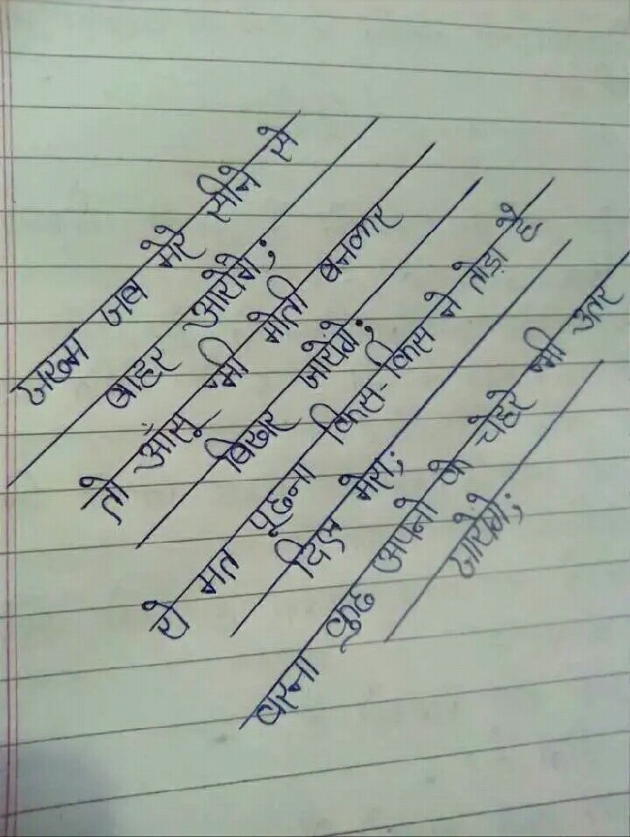 जख्म जब मेरे सीने से
बाहर आयेंगे;
तो आँसू भी मोती बनकर
बिखर जायेंगे;
ये मत पूछना किस-किस ने तोड़ा है
दिल मेरा;
वरना कुछ अपनो के चेहरे भी उतर
जायेंगे;